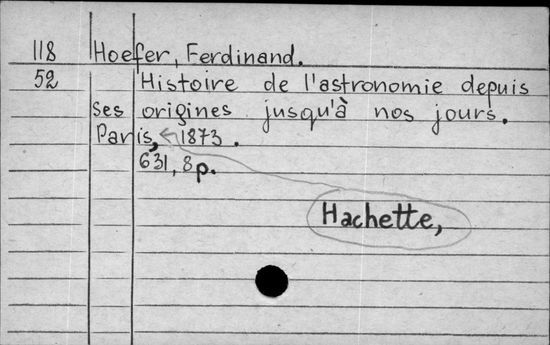 118 Hoefer, Ferdinand.
52 Histoire de l'astronomie depuis
ses origines jusqu'à nos jours.
Paris, 1873.
631, 8 p.
Hachette,